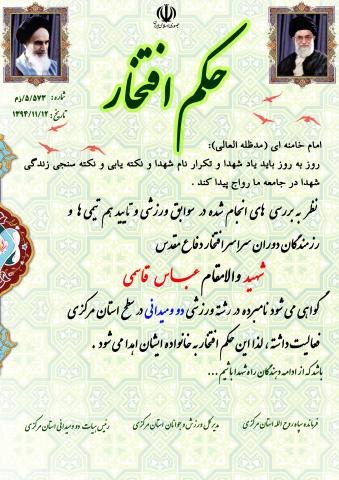 جمهوری اسلامی ایران
شماره: ۵/۵۷۳/م‌ز
تاریخ: ۱۳۹۴/۱۱/۱۲
حکم افتخار
امام خامنه ای (مدظله العالی):
روز به روز باید یاد شهدا و تکرار نام شهدا و نکته یابی و نکته سنجی زندگی
شهدا در جامعه ما رواج پیدا کند .
نظر به بررسی های انجام شده در سوابق ورزشی و تایید هم تیمی ها و
رزمندگان دوران سراسر افتخار دفاع مقدس
شهید والامقام عباس قاسمی
گواهی می شود نامبرده در رشته ورزشی دو و میدانی در سطح استان مرکزی
فعالیت داشته ، لذا این حکم افتخار به خانواده ایشان اهدا می شود .
باشد که از ادامه دهندگان راه شهدا باشیم ...
فرمانده سپاه روح الله استان مرکزی
مدیر کل ورزش و جوانان استان مرکزی
رئیس هیات دو و میدانی استان مرکزی